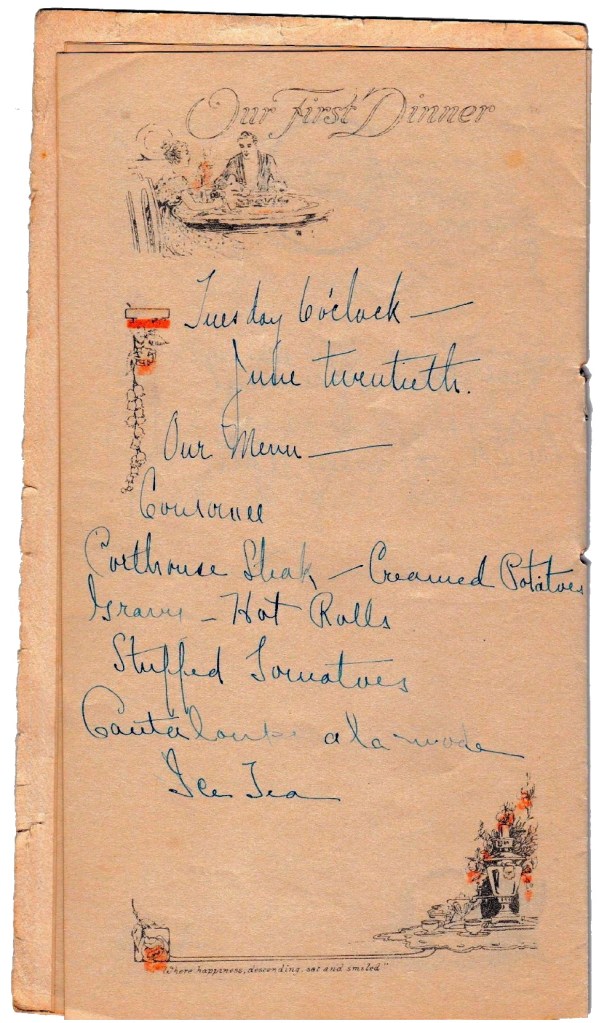 Our First Dinner
Tuesday 6 o'clock —
June twentieth.
Our Menu —
Consomee
Porthouse Steak — Creamed Potatoes
Gravy — Hot Rolls
Stuffed Tomatoes
Cantaloupe a la mode
Ice Tea
"Where happiness, descending, sat and smiled"